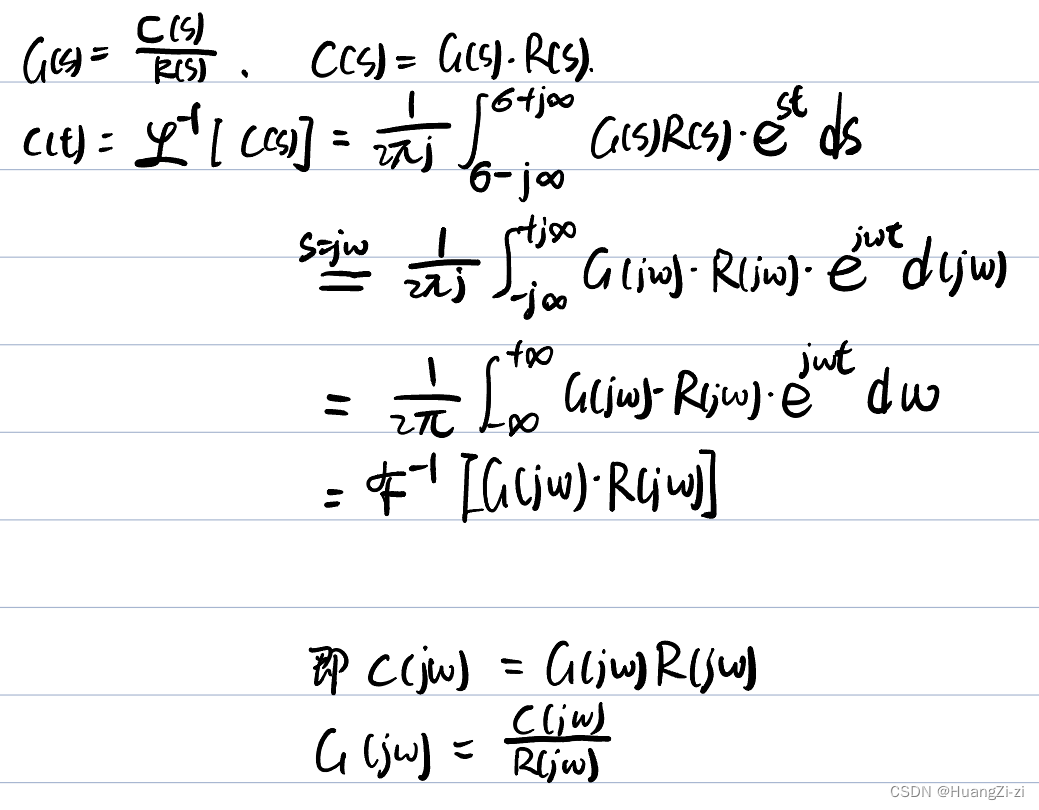 G(s) = C(s)/R(s) . C(s) = G(s)·R(s).
c(t) = ℒ⁻¹[C(s)] = 1/(2πj) ∫_{σ-j∞}^{σ+j∞} G(s)R(s)·e^{st} ds
s=jω = 1/(2πj) ∫_{-j∞}^{+j∞} G(jω)·R(jω)·e^{jωt} d(jω)
= 1/(2π) ∫_{-∞}^{+∞} G(jω)·R(jω)·e^{jωt} dω
= ℱ⁻¹[G(jω)·R(jω)]
即 C(jω) = G(jω)R(jω)
G(jω) = C(jω)/R(jω)
CSDN @HuangZi-zi